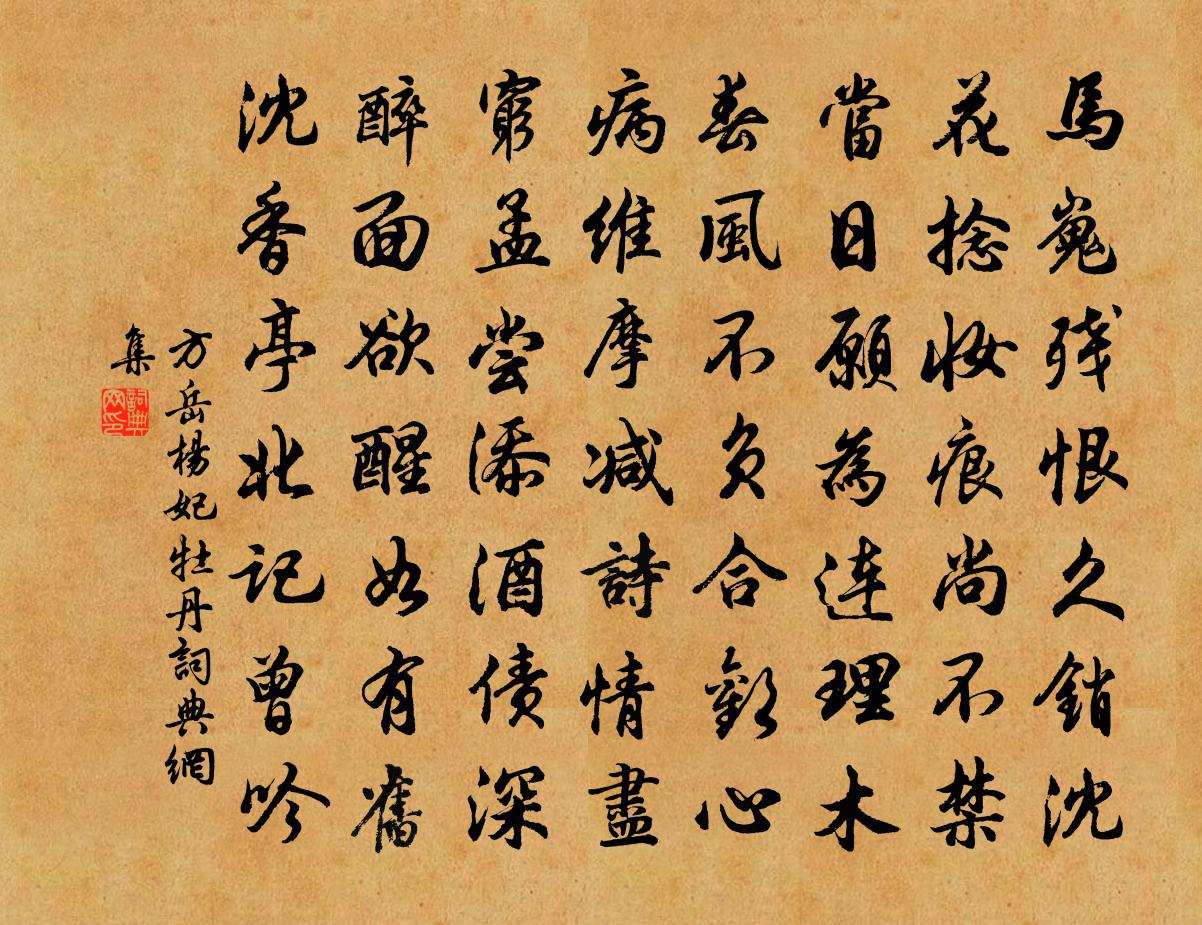 馬嵬残恨久銷沈
花捻妝痕尚不禁
當日願為連理木
春風不負合歡心
病維摩减詩情盡
窮孟嘗添酒債深
醉面欲醒如有舊
沈香亭北記曾吟
方岳楊妃牡丹詞典網
集
詞典网印